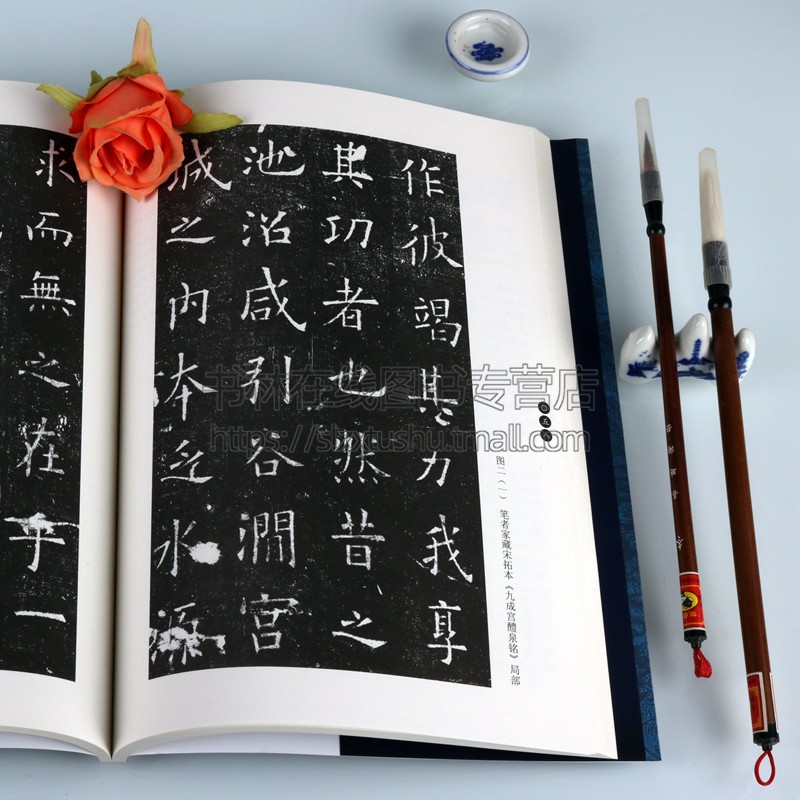 作彼竭其力我享
其功者也然昔之
池沼咸引谷澗宮
城之内本乏水源
求而無之在乎一
图二（一） 笔者家藏宋拓本《九成宫醴泉铭》局部
书林在线图书专营店